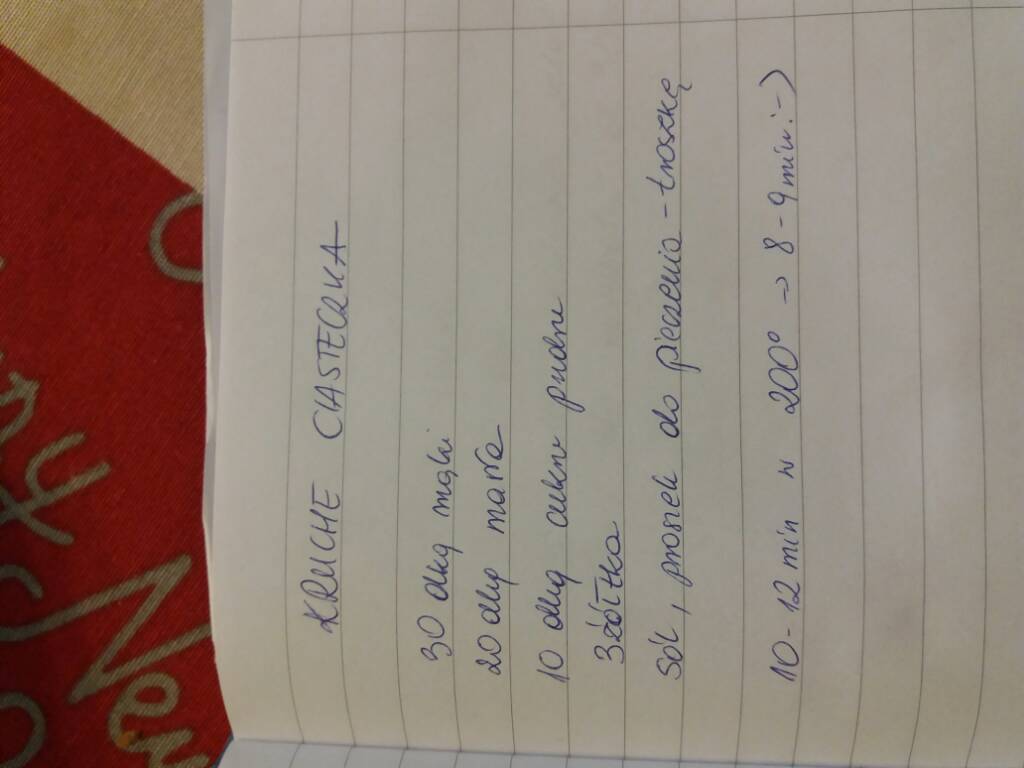 KRUCHE CIASTECZKA
30 dkg mąki
20 dkg masła
10 dkg cukru pudru
3 żółtka
Sól, proszek do pieczenia - troszkę
10-12 min w 200° → 8-9 min :-)
ry
New